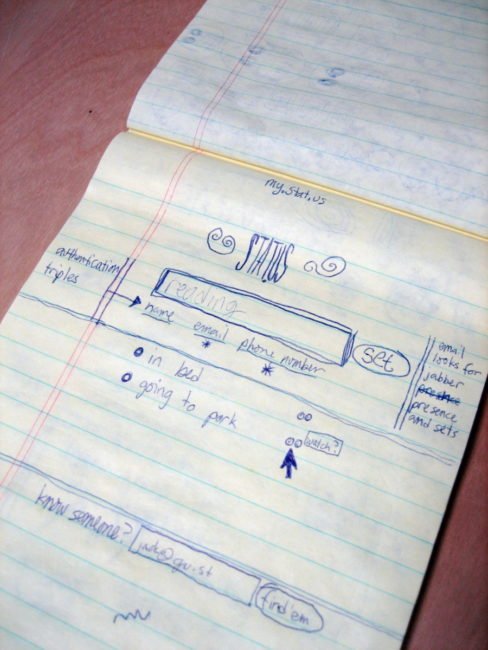 my.stat.us
STATUS
authentication
triples
reading
name email phone number
set
* *
email
looks for
jabber
presence
and sets
in bed
going to park
watch?
know someone?
find em